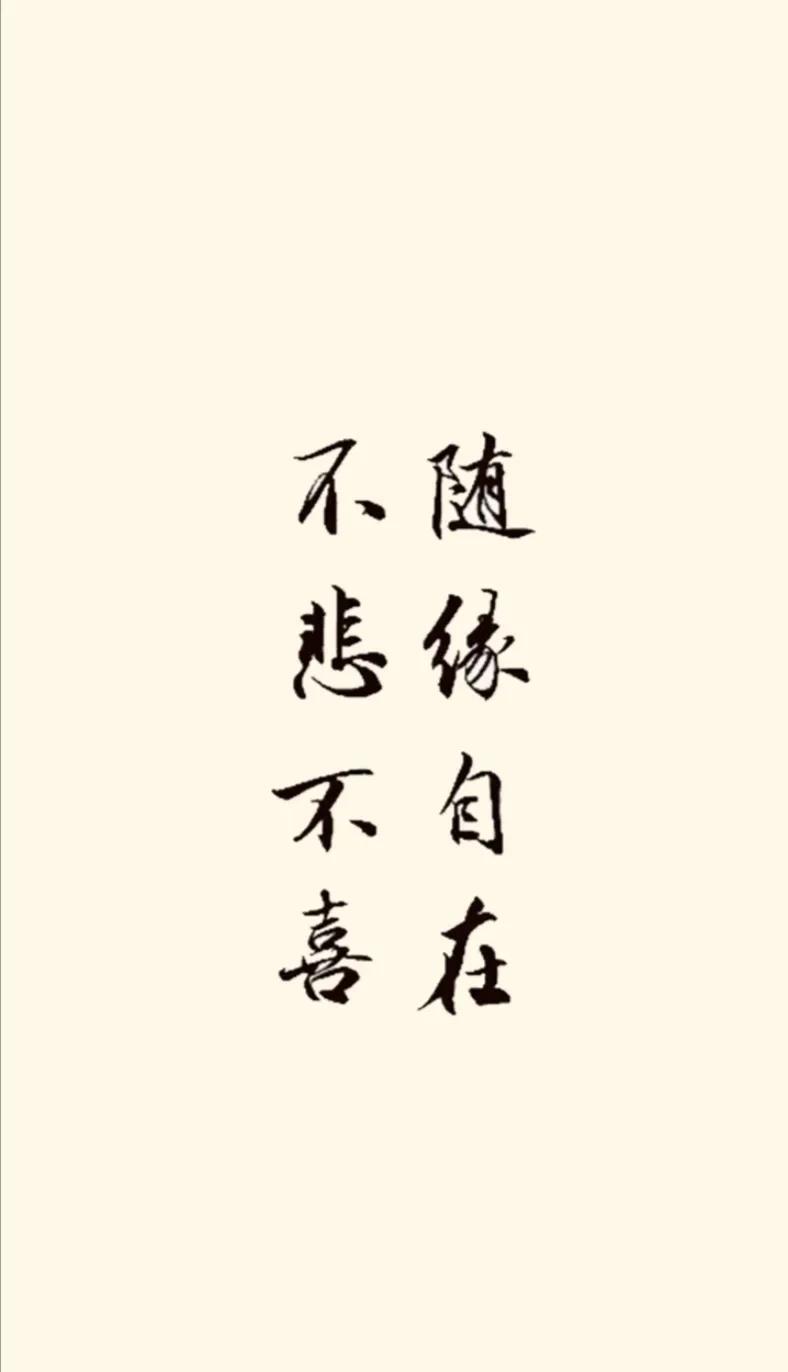 随缘自在
不悲不喜